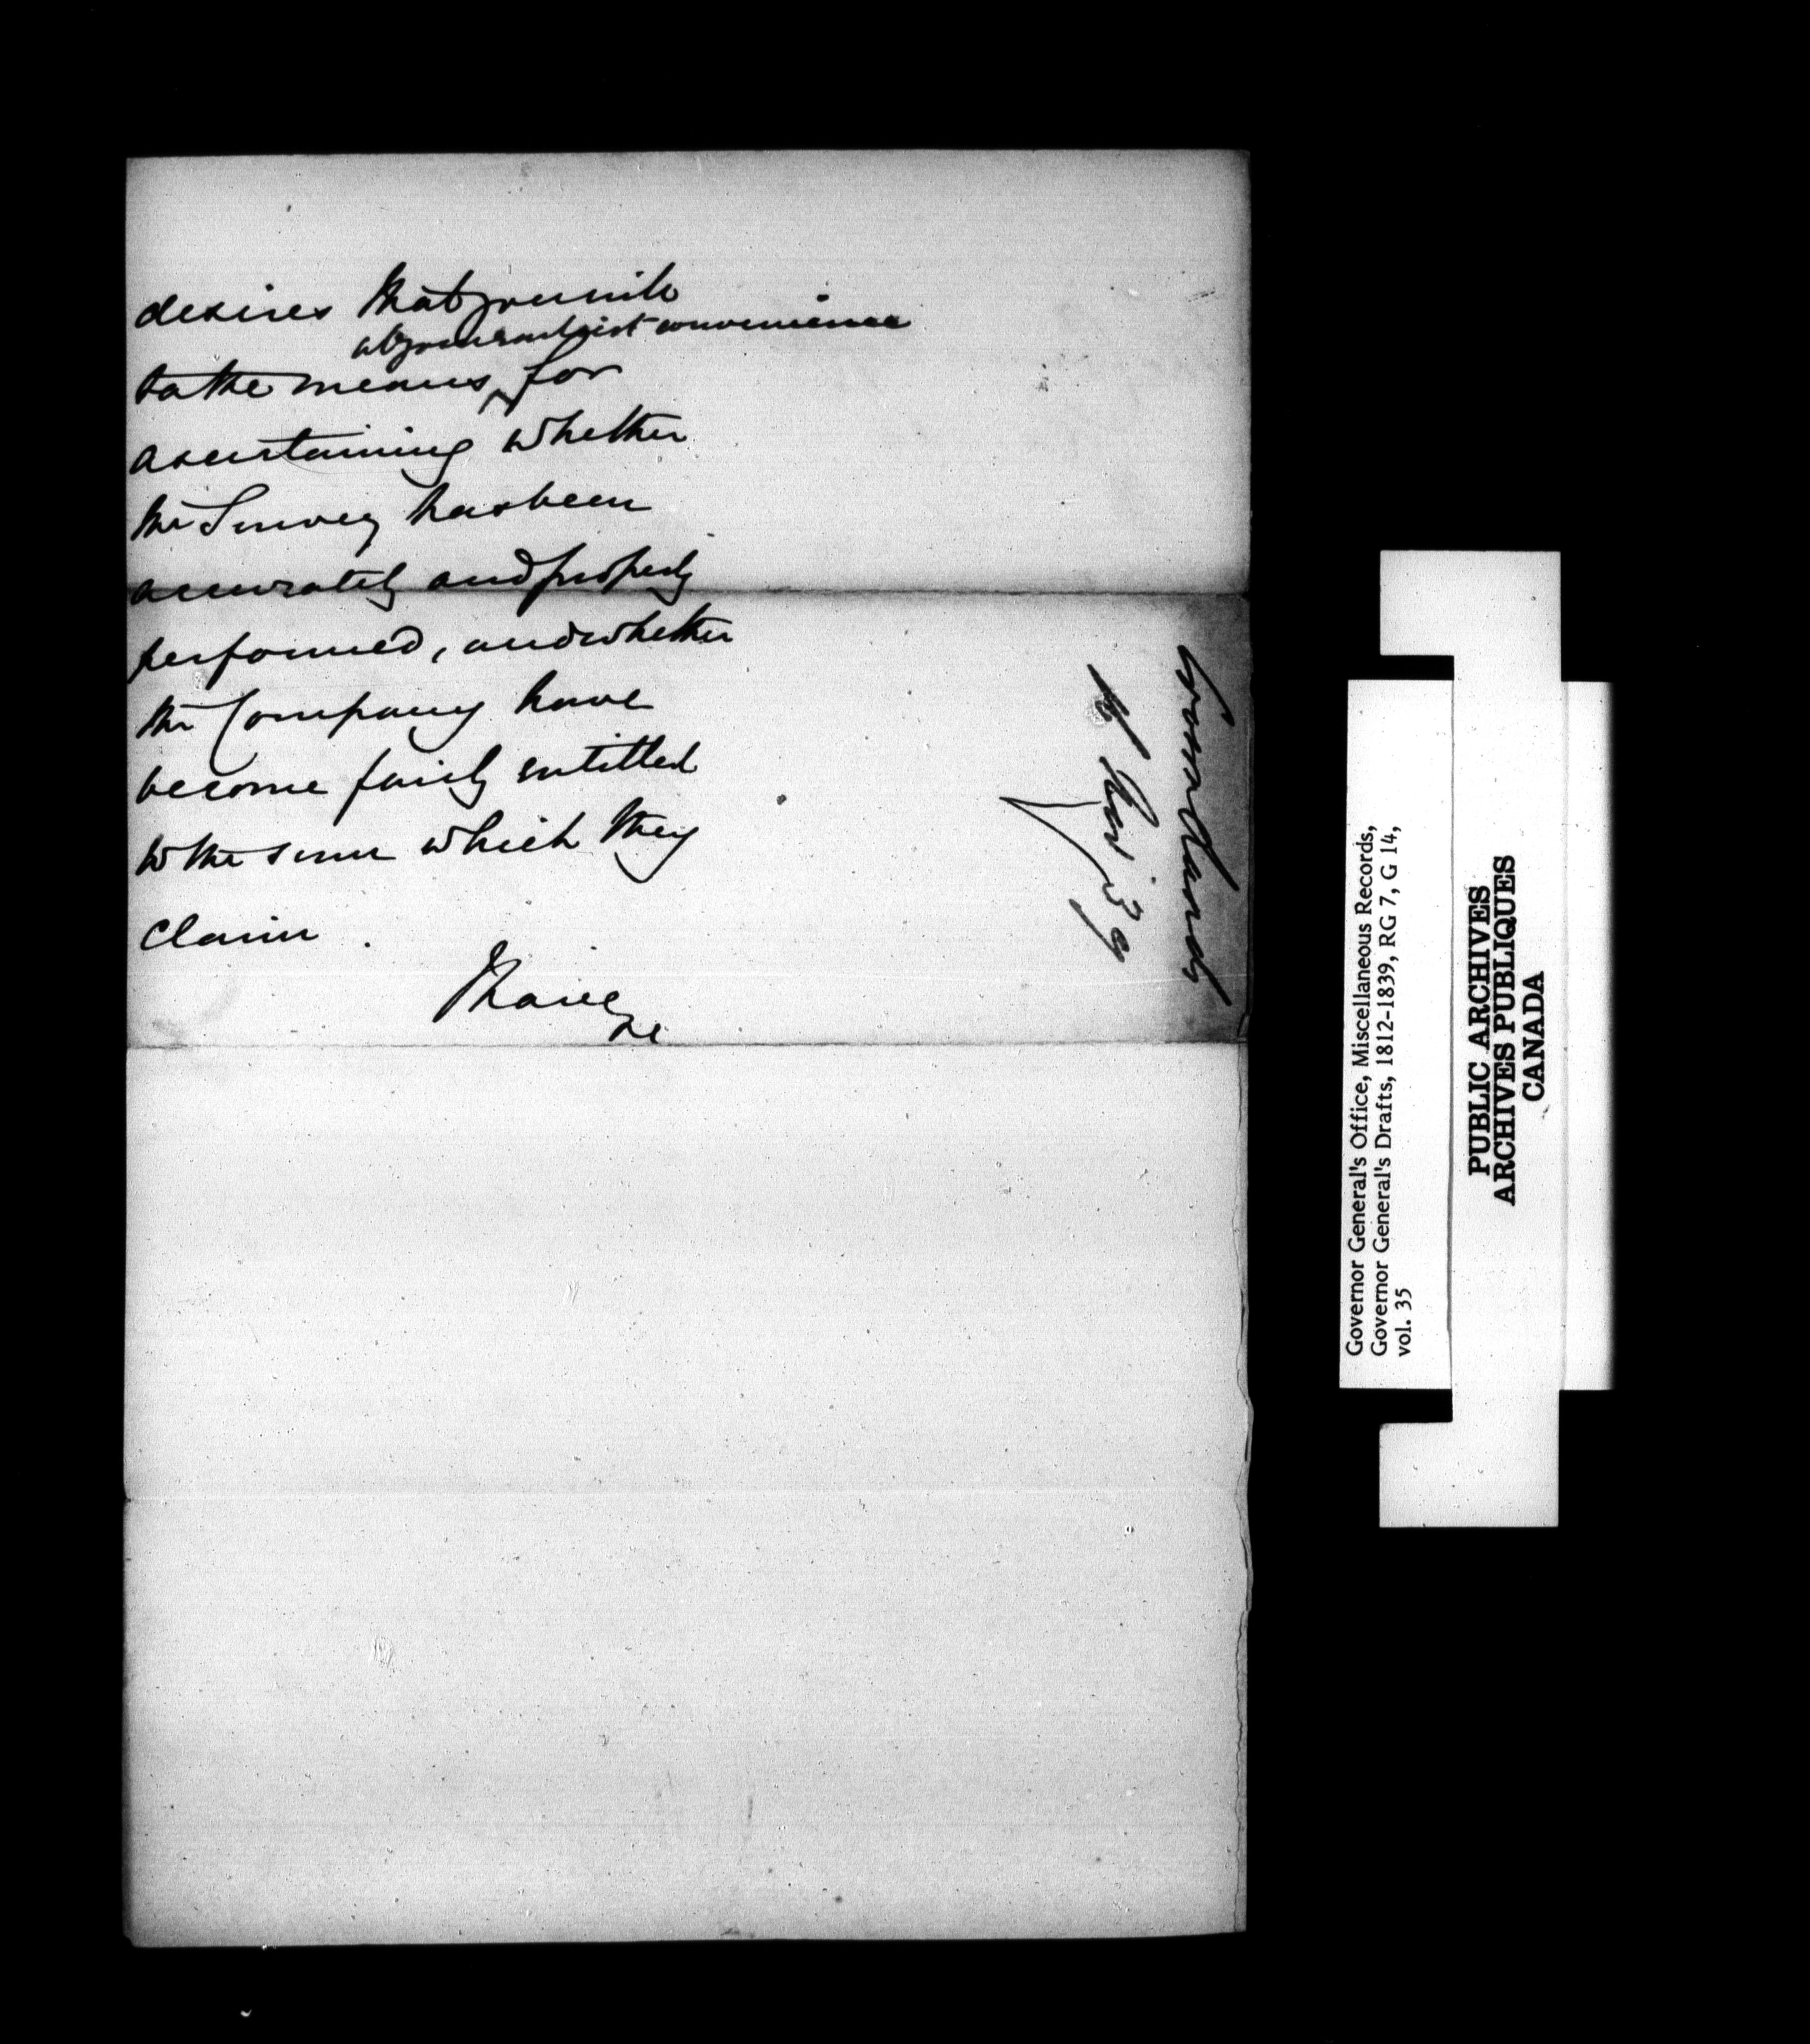 desires that you will
at your earliest convenience
take means for
ascertaining whether
the Survey has been
accurately and properly
performed, and whether
the Company have
become fairly entitled
to the sum which they
claim .
I have
&c
Crown Lands
Nov 39
Governor General's Office, Miscellaneous Records,
Governor General's Drafts, 1812-1839, RG 7, G 14,
vol. 35
PUBLIC ARCHIVES
ARCHIVES PUBLIQUES
CANADA